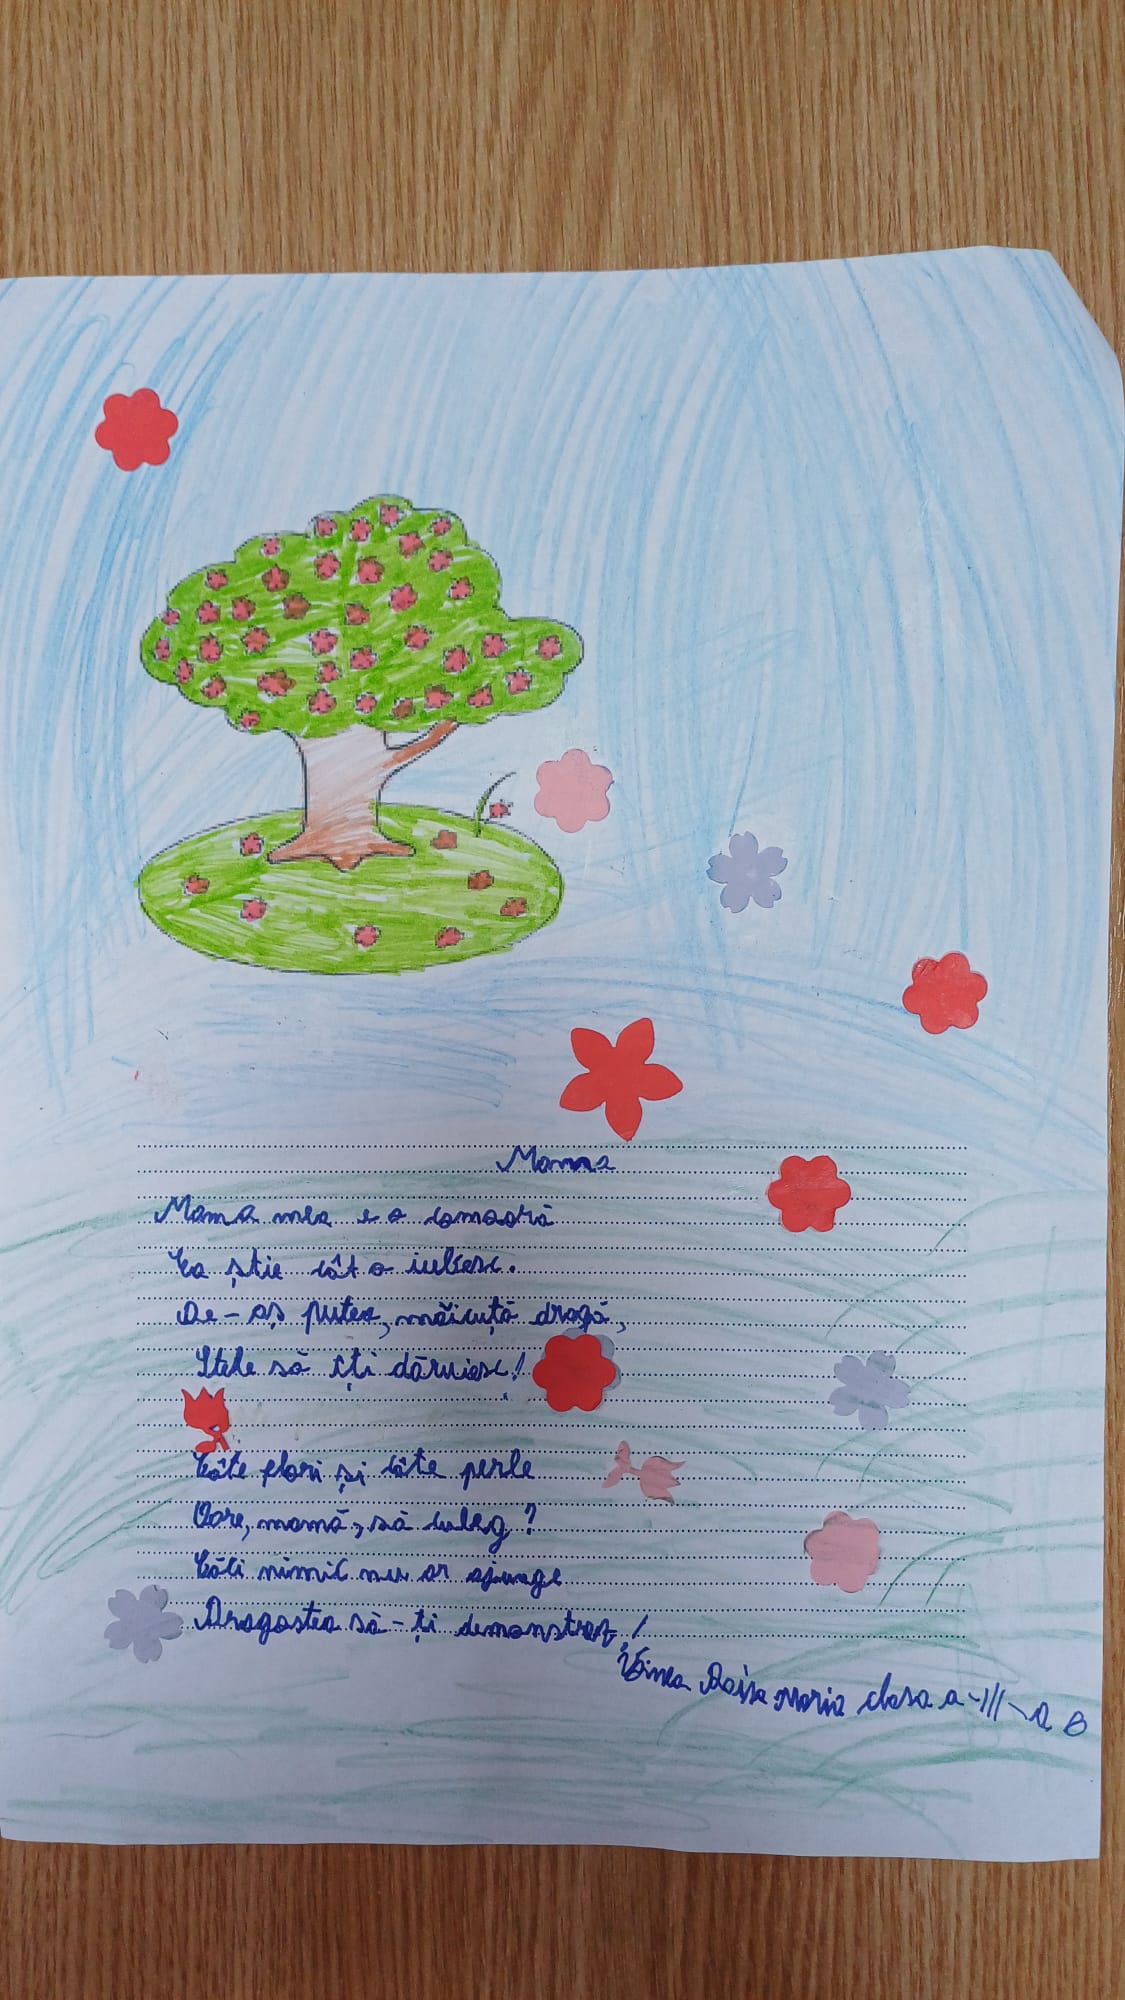 Mama
Mama mea e o comoară
Ea știe cât o iubesc.
De-aș putea, măicuță dragă,
Stele să îți dăruiesc!
Câte flori și câte perle
Oare, mamă, să culeg?
Căci nimic nu ar ajunge
Dragostea să-ți demonstrez!
Maria clasa a-III-a B